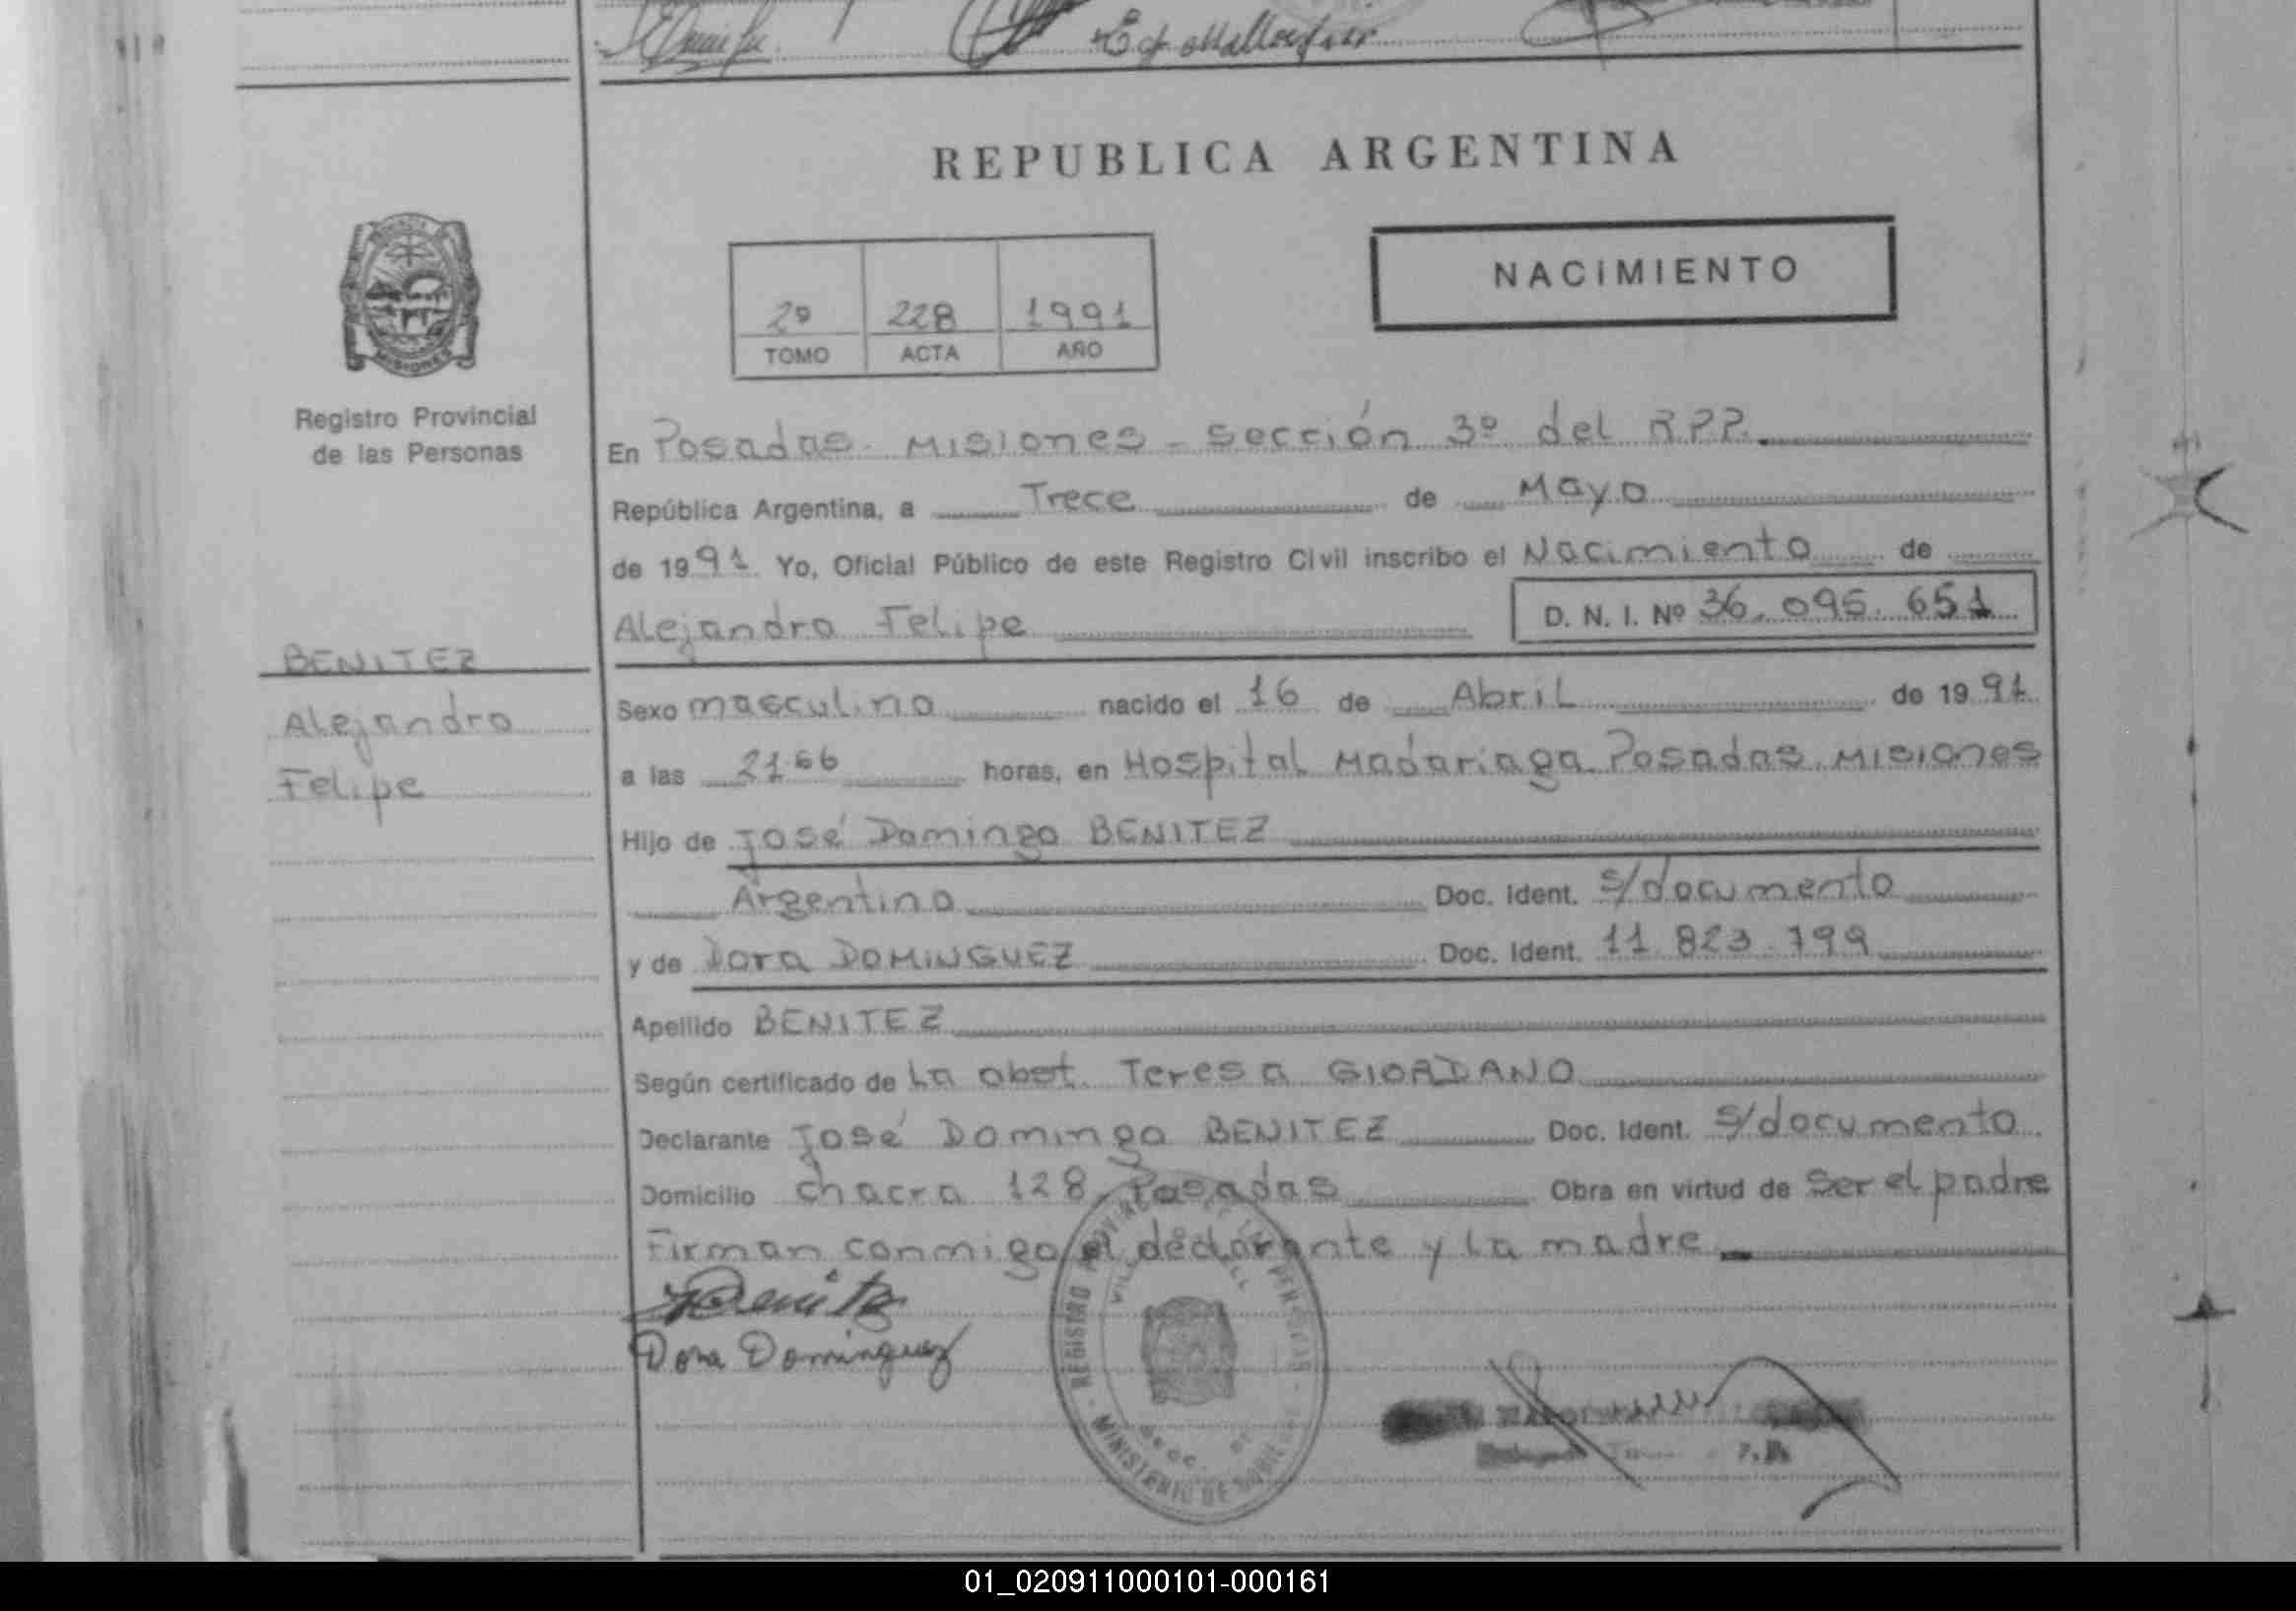 REPUBLICA ARGENTINA
NACIMIENTO
2º 228 1991
TOMO ACTA AÑO
MISIONES
Registro Provincial
de las Personas
En Posadas - Misiones - Sección 3º del R.P.P.
República Argentina, a Trece de Mayo
de 1991 Yo, Oficial Público de este Registro Civil inscribo el Nacimiento de
Alejandro Felipe D. N. I. Nº 36.095.651
BENITEZ
Alejandro
Felipe
Sexo masculino nacido el 16 de Abril de 1991
a las horas, en Hospital Madariaga Posadas Misiones
Hijo de José Domingo BENITEZ
Argentino Doc. Ident. s/documento
y de Dora DOMINGUEZ Doc. Ident. 11.823.799
Apellido BENITEZ
Según certificado de La obst. Teresa GIORDANO
Declarante José Domingo BENITEZ Doc. Ident. s/documento
Domicilio chacra 128, Posadas Obra en virtud de Ser el padre
Firman conmigo el declarante y la madre
Benitez
Dora Dominguez
REGISTRO MINISTERIO DE
01_020911000101-000161